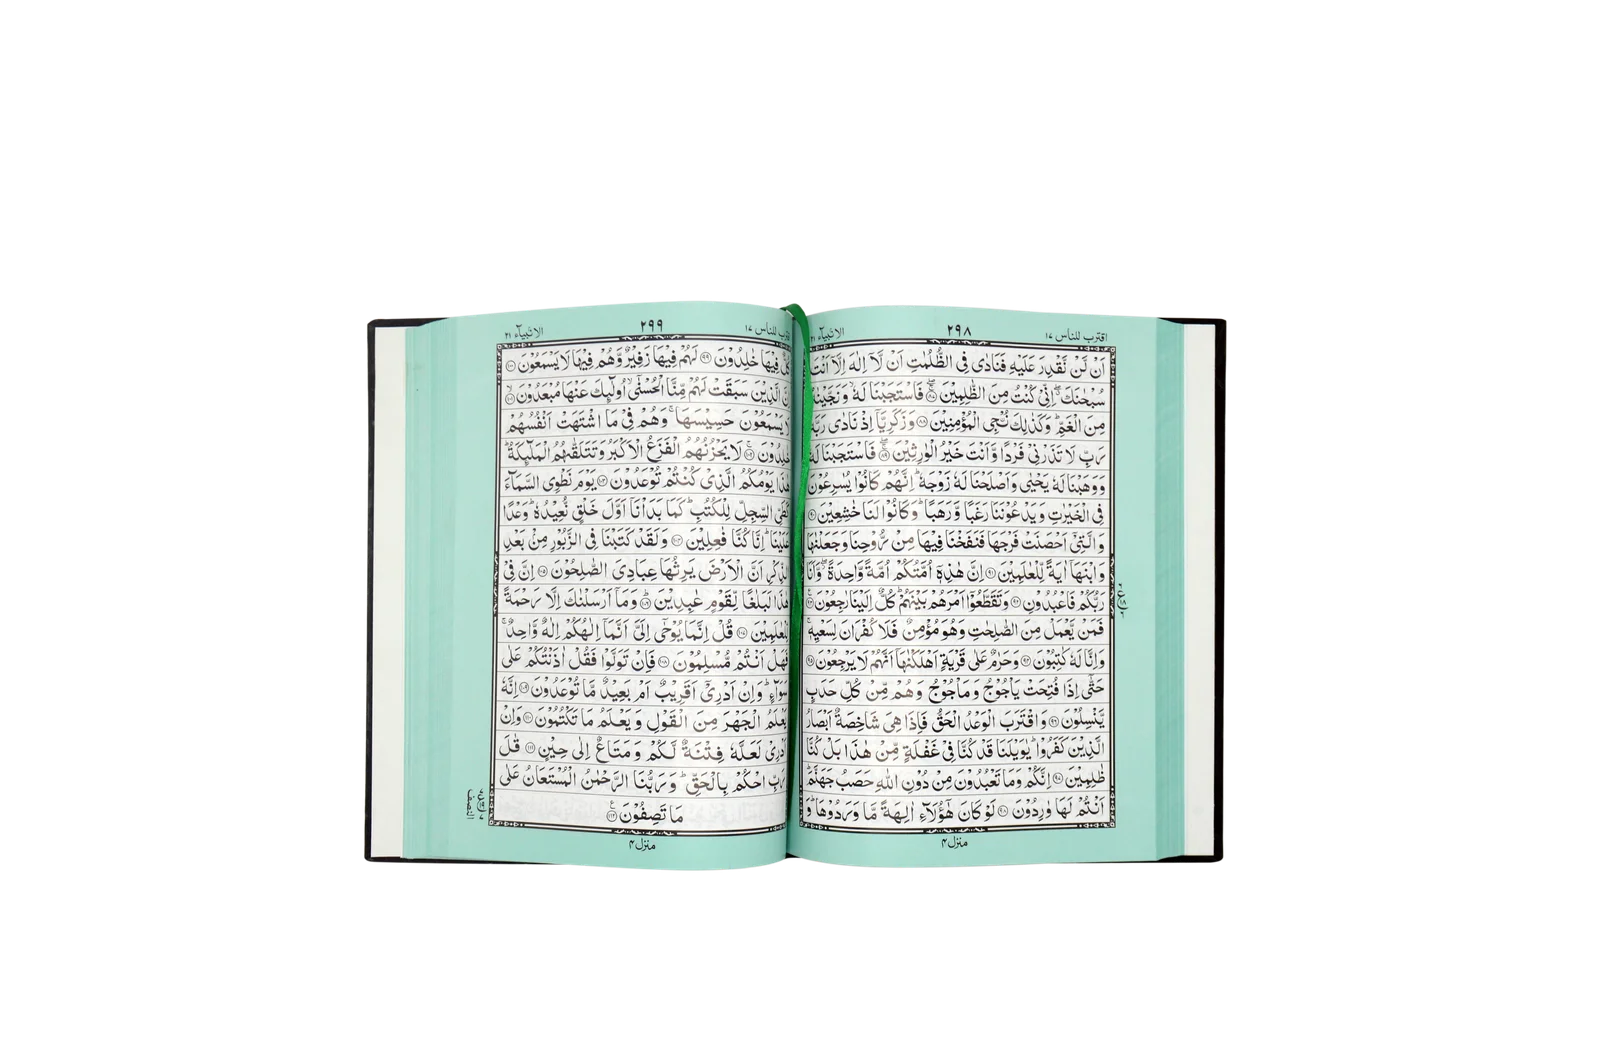 اقترب للناس ١٧
٢٩٨
الانبیآء ٢١
اَنْ لَّنْ نَّقْدِرَ عَلَیْهِ فَنَادٰی فِی الظُّلُمٰتِ اَنْ لَّاۤ اِلٰهَ اِلَّاۤ اَنْتَ
سُبْحٰنَكَ ۖۗ اِنِّیْ كُنْتُ مِنَ الظّٰلِمِیْنَ ۚۖ ﴿٨٧﴾ فَاسْتَجَبْنَا لَهٗ ۙ وَ نَجَّیْنٰهُ
مِنَ الْغَمِّ ؕ وَ كَذٰلِكَ نُـْۨجِی الْمُؤْمِنِیْنَ ﴿٨٨﴾ وَ زَكَرِیَّاۤ اِذْ نَادٰی رَبَّهٗ
رَبِّ لَا تَذَرْنِیْ فَرْدًا وَّ اَنْتَ خَیْرُ الْوٰرِثِیْنَ ۚۖ ﴿٨٩﴾ فَاسْتَجَبْنَا لَهٗ
وَ وَهَبْنَا لَهٗ یَحْیٰی وَ اَصْلَحْنَا لَهٗ زَوْجَهٗ ؕ اِنَّهُمْ كَانُوْا یُسٰرِعُوْنَ
فِی الْخَیْرٰتِ وَ یَدْعُوْنَنَا رَغَبًا وَّ رَهَبًا ؕ وَ كَانُوْا لَنَا خٰشِعِیْنَ ﴿٩٠﴾
وَ الَّتِیْۤ اَحْصَنَتْ فَرْجَهَا فَنَفَخْنَا فِیْهَا مِنْ رُّوْحِنَا وَ جَعَلْنٰهَا
وَ ابْنَهَاۤ اٰیَةً لِّلْعٰلَمِیْنَ ﴿٩١﴾ اِنَّ هٰذِهٖۤ اُمَّتُكُمْ اُمَّةً وَّاحِدَةً ۖؗ وَّ اَنَا
رَبُّكُمْ فَاعْبُدُوْنِ ﴿٩٢﴾ وَ تَقَطَّعُوْۤا اَمْرَهُمْ بَیْنَهُمْ ؕ كُلٌّ اِلَیْنَا رٰجِعُوْنَ ﴿٩٣﴾
فَمَنْ یَّعْمَلْ مِنَ الصّٰلِحٰتِ وَ هُوَ مُؤْمِنٌ فَلَا كُفْرَانَ لِسَعْیِهٖ ۚ
وَ اِنَّا لَهٗ كٰتِبُوْنَ ﴿٩٤﴾ وَ حَرٰمٌ عَلٰی قَرْیَةٍ اَهْلَكْنٰهَاۤ اَنَّهُمْ لَا یَرْجِعُوْنَ ﴿٩٥﴾
حَتّٰۤی اِذَا فُتِحَتْ یَاْجُوْجُ وَ مَاْجُوْجُ وَ هُمْ مِّنْ كُلِّ حَدَبٍ
یَّنْسِلُوْنَ ﴿٩٦﴾ وَ اقْتَرَبَ الْوَعْدُ الْحَقُّ فَاِذَا هِیَ شَاخِصَةٌ اَبْصَارُ
الَّذِیْنَ كَفَرُوْا ؕ یٰوَیْلَنَا قَدْ كُنَّا فِیْ غَفْلَةٍ مِّنْ هٰذَا بَلْ كُنَّا
ظٰلِمِیْنَ ﴿٩٧﴾ اِنَّكُمْ وَ مَا تَعْبُدُوْنَ مِنْ دُوْنِ اللّٰهِ حَصَبُ جَهَنَّمَ ؕ
اَنْتُمْ لَهَا وٰرِدُوْنَ ﴿٩٨﴾ لَوْ كَانَ هٰۤؤُلَآءِ اٰلِهَةً مَّا وَرَدُوْهَا ؕ وَ
منزل ۴
اقترب للناس ١٧
٢٩٩
الانبیآء ٢١
كُلٌّ فِیْهَا خٰلِدُوْنَ ﴿٩٩﴾ لَهُمْ فِیْهَا زَفِیْرٌ وَّ هُمْ فِیْهَا لَا یَسْمَعُوْنَ ﴿١٠٠﴾
اِنَّ الَّذِیْنَ سَبَقَتْ لَهُمْ مِّنَّا الْحُسْنٰۤی ۙ اُولٰٓىِٕكَ عَنْهَا مُبْعَدُوْنَ ۙ ﴿١٠١﴾
لَا یَسْمَعُوْنَ حَسِیْسَهَا ۚ وَ هُمْ فِیْ مَا اشْتَهَتْ اَنْفُسُهُمْ
خٰلِدُوْنَ ۚ ﴿١٠٢﴾ لَا یَحْزُنُهُمُ الْفَزَعُ الْاَكْبَرُ وَ تَتَلَقّٰىهُمُ الْمَلٰٓىِٕكَةُ ؕ
هٰذَا یَوْمُكُمُ الَّذِیْ كُنْتُمْ تُوْعَدُوْنَ ﴿١٠٣﴾ یَوْمَ نَطْوِی السَّمَآءَ
كَطَیِّ السِّجِلِّ لِلْكُتُبِ ؕ كَمَا بَدَاْنَاۤ اَوَّلَ خَلْقٍ نُّعِیْدُهٗ ؕ وَعْدًا
عَلَیْنَا ؕ اِنَّا كُنَّا فٰعِلِیْنَ ﴿١٠٤﴾ وَ لَقَدْ كَتَبْنَا فِی الزَّبُوْرِ مِنْۢ بَعْدِ
الذِّكْرِ اَنَّ الْاَرْضَ یَرِثُهَا عِبَادِیَ الصّٰلِحُوْنَ ﴿١٠٥﴾ اِنَّ فِیْ
هٰذَا لَبَلٰغًا لِّقَوْمٍ عٰبِدِیْنَ ؕ ﴿١٠٦﴾ وَ مَاۤ اَرْسَلْنٰكَ اِلَّا رَحْمَةً
لِّلْعٰلَمِیْنَ ﴿١٠٧﴾ قُلْ اِنَّمَا یُوْحٰۤی اِلَیَّ اَنَّمَاۤ اِلٰهُكُمْ اِلٰهٌ وَّاحِدٌ ۚ
فَهَلْ اَنْتُمْ مُّسْلِمُوْنَ ﴿١٠٨﴾ فَاِنْ تَوَلَّوْا فَقُلْ اٰذَنْتُكُمْ عَلٰی
سَوَآءٍ ؕ وَ اِنْ اَدْرِیْۤ اَقَرِیْبٌ اَمْ بَعِیْدٌ مَّا تُوْعَدُوْنَ ﴿١٠٩﴾ اِنَّهٗ
یَعْلَمُ الْجَهْرَ مِنَ الْقَوْلِ وَ یَعْلَمُ مَا تَكْتُمُوْنَ ﴿١١٠﴾ وَ اِنْ
اَدْرِیْ لَعَلَّهٗ فِتْنَةٌ لَّكُمْ وَ مَتَاعٌ اِلٰی حِیْنٍ ﴿١١١﴾ قٰلَ
رَبِّ احْكُمْ بِالْحَقِّ ؕ وَ رَبُّنَا الرَّحْمٰنُ الْمُسْتَعَانُ عَلٰی
مَا تَصِفُوْنَ ﴿١١٢﴾
النصف
منزل ۴